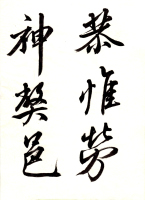 恭惟勞
神邑